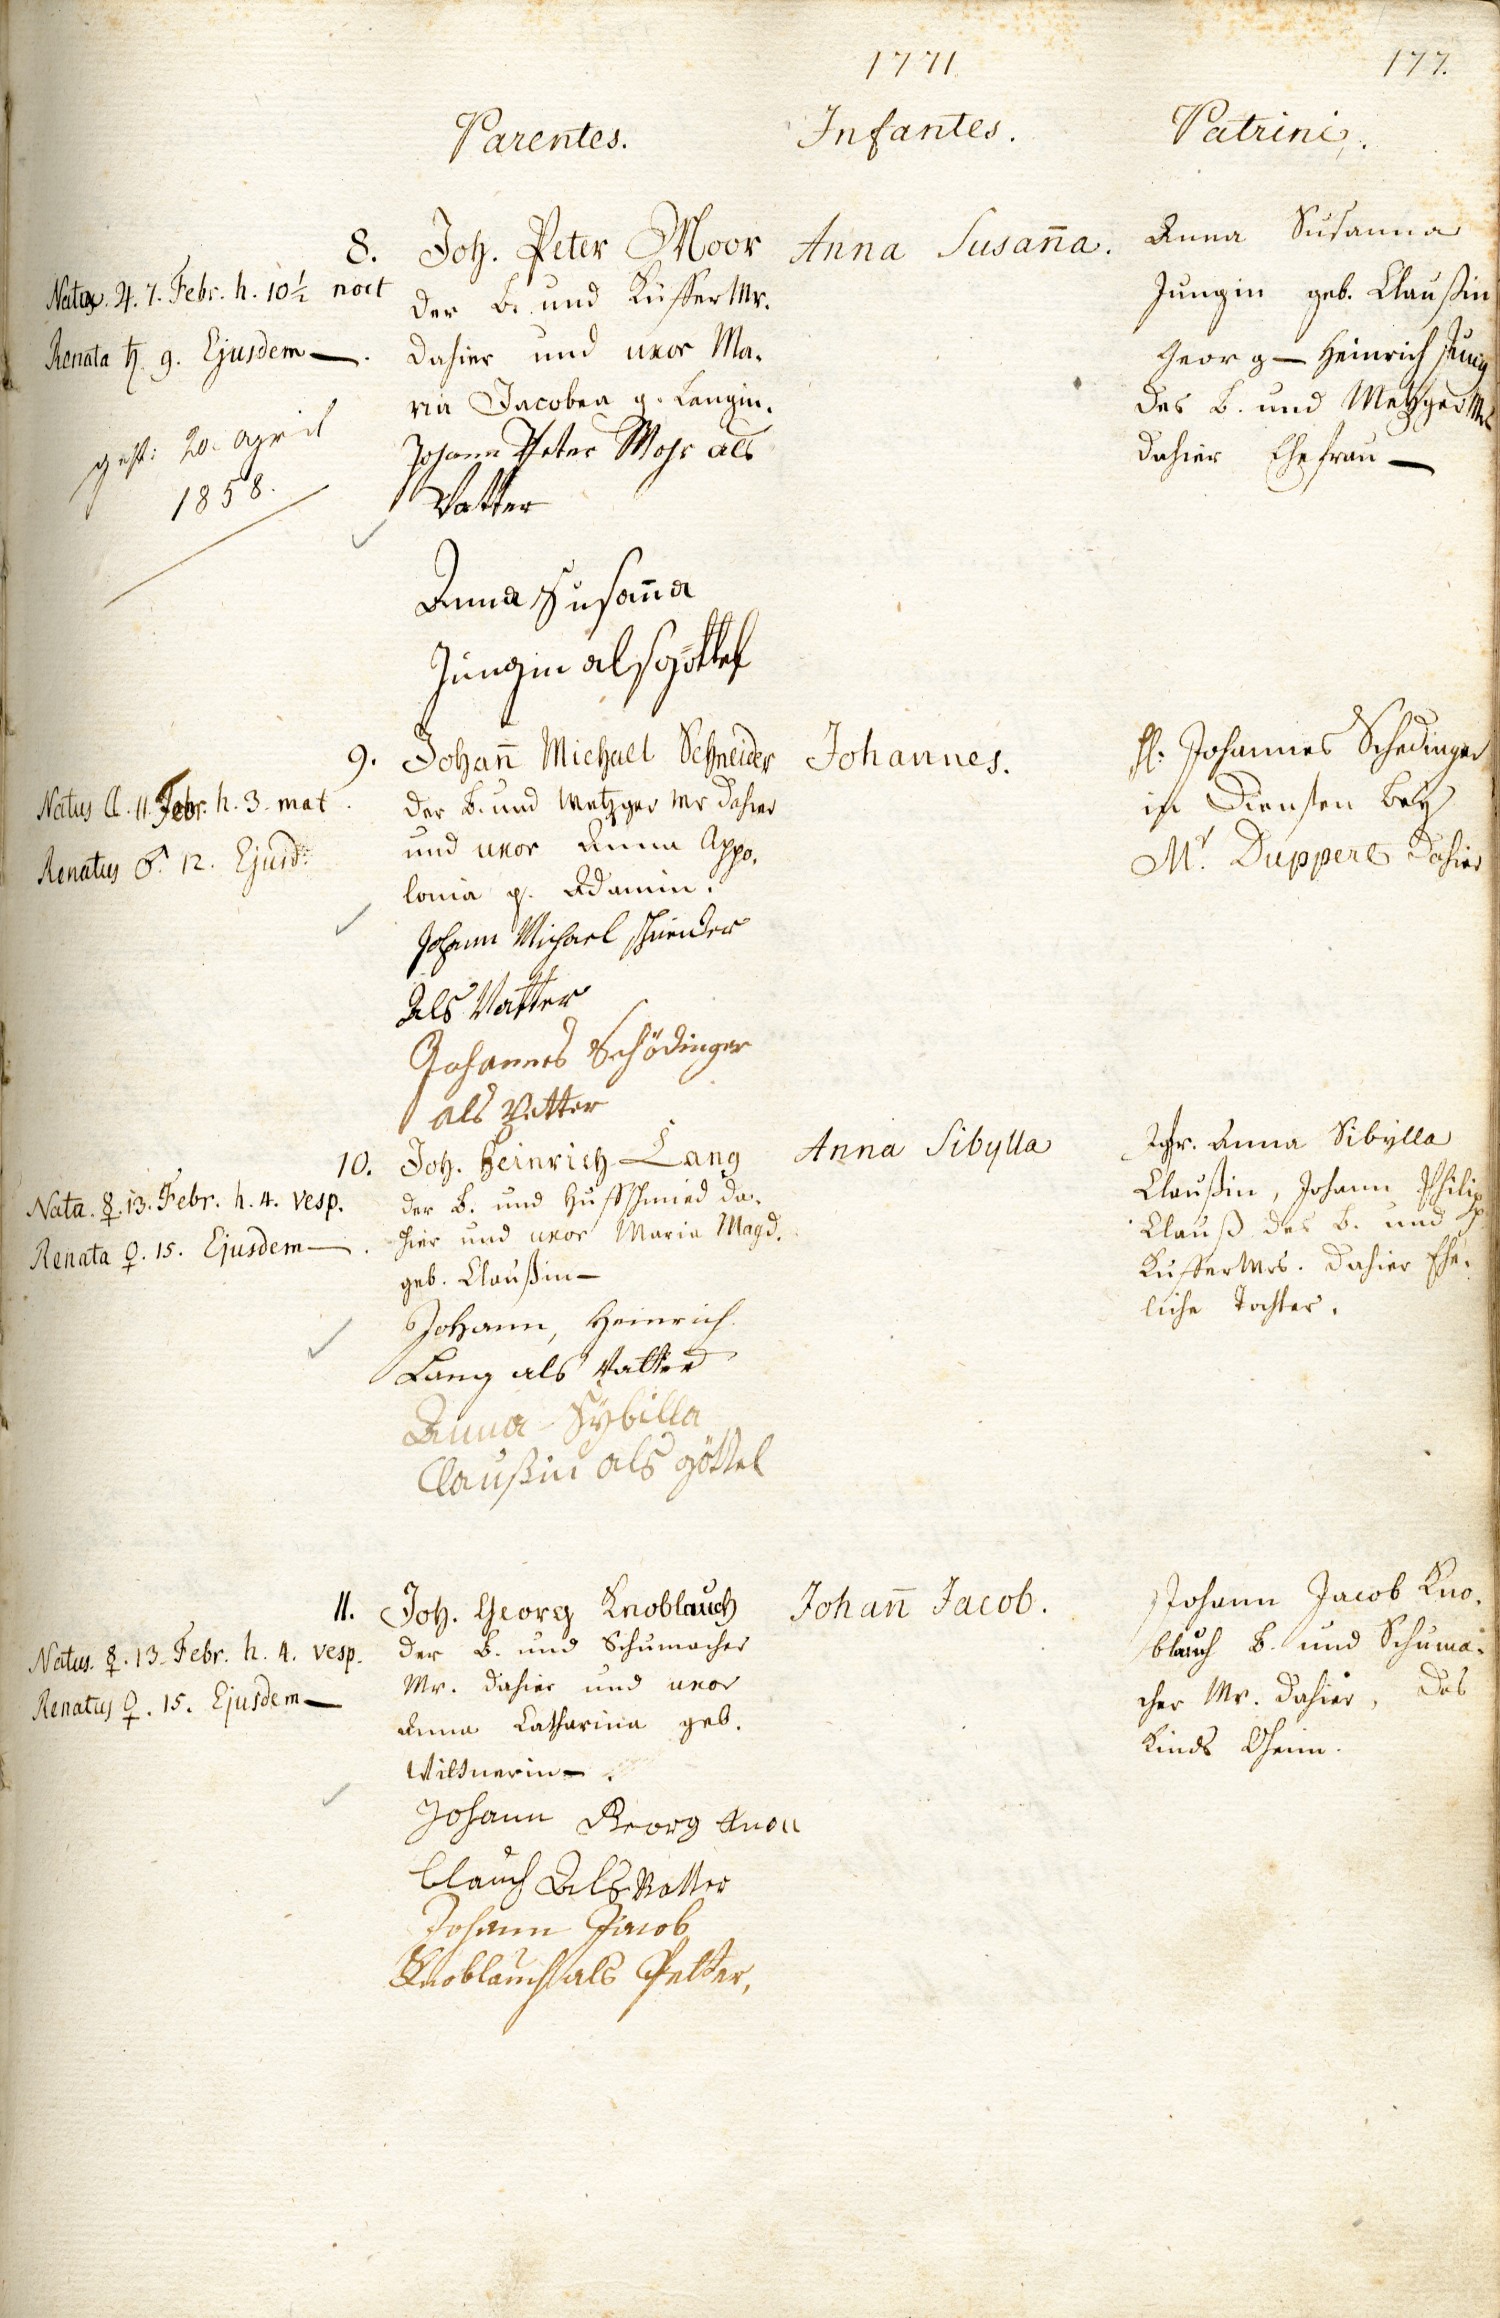 1771.
177.
Parentes.
Infantes.
Patrini.
8.
Nata ♃. 7. Febr. h. 10½ noct
Renata ♄. 9. Ejusdem —.
gest: 20. april
1858.
Joh. Peter Moor
der B. und Küffer Mr.
dahier und uxor Ma-
ria Jacobea g. Langin.
Johann Peter Mohr als
Vatter
Anna Susan̄a
Jungin als göttel
Anna Susan̄a.
Anna Susanna
Jungin geb. Claußin
Georg — Heinrich Jung
des B. und Metzger Mrs
dahier Ehefrau —
9.
Natus ☾. 11. Febr. h. 3. mat.
Renatus ♂. 12. Ejusd:
Johan̄ Michael Schneider
der B. und Metzger Mr dahier
und uxor Anna Appo-
lonia g. Adamin.
Johann Michael Schneider
Als Vatter
Johannes Schödinger
als Petter
Johannes.
H: Johannes Schedinger
in Diensten bey
Mr. Duppere dahier
10.
Nata. ☿. 13. Febr. h. 4. vesp.
Renata ♀. 15. Ejusdem —.
Joh. Heinrich Lang
der B. und Hufschmied da-
hier und uxor Maria Magd.
geb. Claußin —
Johann, Heinrich
Lang als Vatter
Anna - Sybilla
Claußin als göttel
Anna Sibylla
Jgfr. Anna Sibylla
Claußin, Johann Philipp
Clauß des B. und
Kuffer Mrs. dahier Ehe-
liche Tochter.
11.
Natus. ☿. 13. Febr. h. 4. vesp.
Renatus ♀. 15. Ejusdem —
Joh. Georg Knoblauch
der B. und Schumacher
Mr. dahier und uxor
Anna Catharina geb.
Wiltnerin —.
Johann Georg Knou
blauch Als Vatter
Johann Jacob
Knoblauch als Petter,
Johan̄ Jacob.
Johann Jacob Kno-
blauch B. und Schuma-
cher Mr. dahier, des
Kinds Oheim.